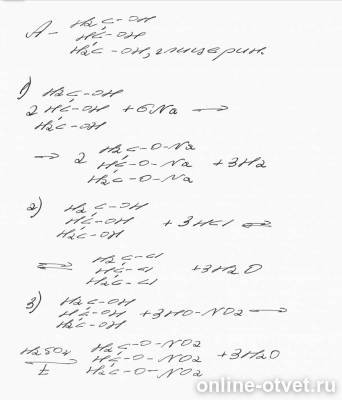 H₂C-OH
A- HC-OH
H₂C-OH, глицерин.
1) H₂C-OH
2 HC-OH + 6Na →
H₂C-OH
H₂C-O-Na
→ 2 HC-O-Na + 3H₂
H₂C-O-Na
2) H₂C-OH
HC-OH + 3HCl ⇌
H₂C-OH
H₂C-Cl
⇌ HC-Cl + 3H₂O
H₂C-Cl
3) H₂C-OH
HC-OH + 3HO-NO₂ →
H₂C-OH
H₂SO₄ H₂C-O-NO₂
→ HC-O-NO₂ + 3H₂O
t H₂C-O-NO₂
online-otvet.ru